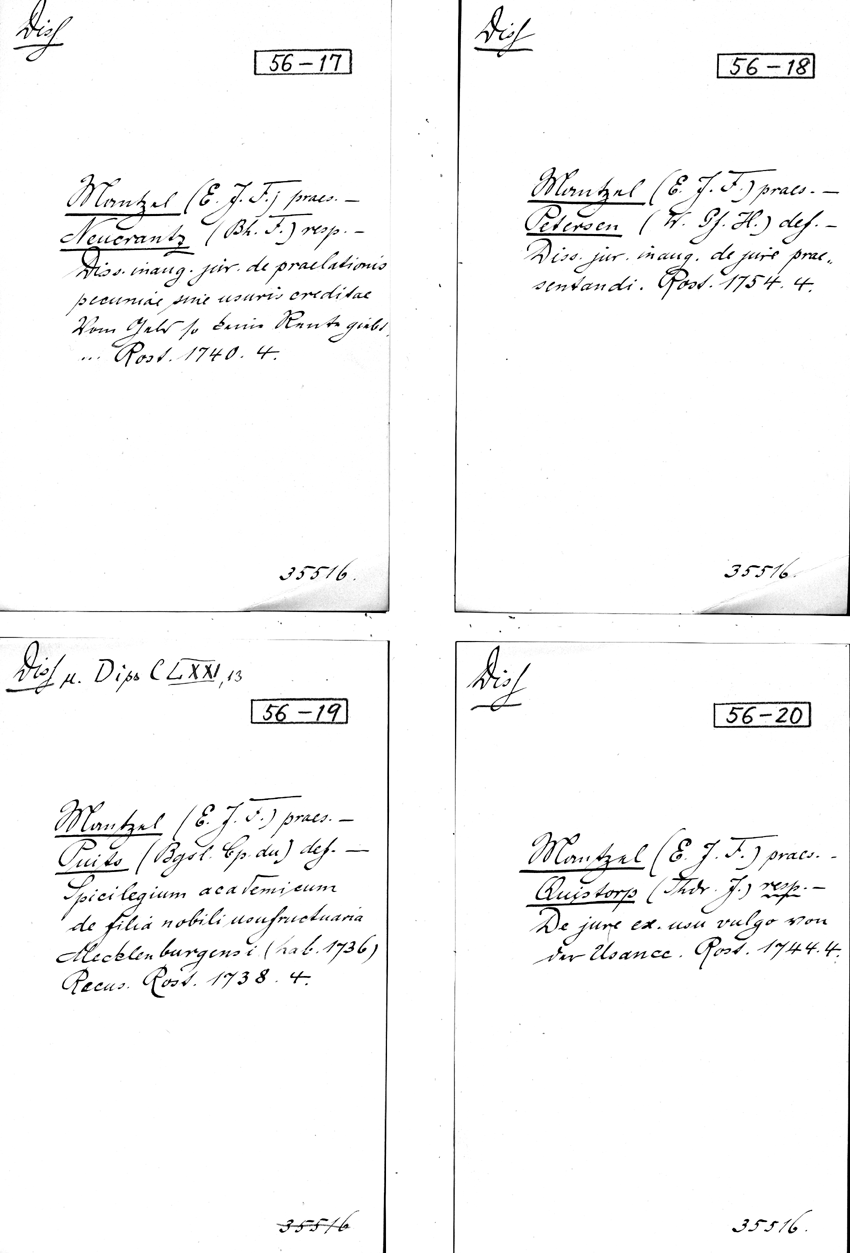 Diss
56-17
Mantzel (E. J. F.) praes. —
Neucrantz (Bh. F.) resp. —
Diss. inaug. jur. de praelationis
pecuniae, sine usuris creditae
Vom Geld so keine Rente giebt,
... Rost. 1740. 4.
35516.
Diss
56-18
Mantzel (E. J. F.) praes. —
Petersen (W. Gf. H.) def. —
Diss. jur. inaug. de jure prae-
sentandi. Rost. 1754. 4.
35516.
Diss u. Diss CLXXI,13
56-19
Mantzel (E. J. F.) praes. —
Puits (Bgsl. Cp. du) def. —
Spicilegium academicum
de filia nobili usufructuaria
Mecklenburgensi (hab. 1736)
Recus. Rost. 1738. 4.
35516
Diss
56-20
Mantzel (E. J. F.) praes. -
Quistorp (Thdr. J.) resp. —
De jure ex usu vulgo von
der Usance. Rost. 1744. 4.
35516.